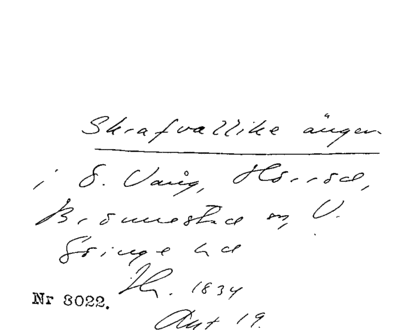 Skrafvallike ängen
i S. Vång, Hörröd,
Brönnestad sn, V.
Göinge hd
Th. 1834
Nr 3022.
Akt 19.